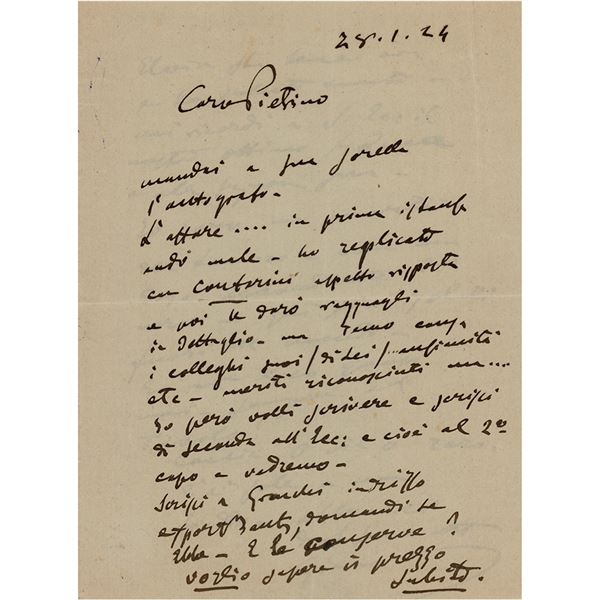 28.1.24
Caro Pietino
mandai a sua sorella
l'autografo -
L'affare .... in prima istanza
andò male - ho replicato
con Contarini aspetto risposta
e poi te darò ragguagli
in dettaglio - ma temo
i colleghi suoi / di Lei / ... anzianità
etc - meriti riconosciuti ma ...
Io però volli scrivere e scrissi
di seconda all' Ecc: e cioè al 2º
capo e vedremo -
Scrissi a indirizzo
domandi se
Ebbe - E le conserve?
voglio sapere il prezzo
subito.